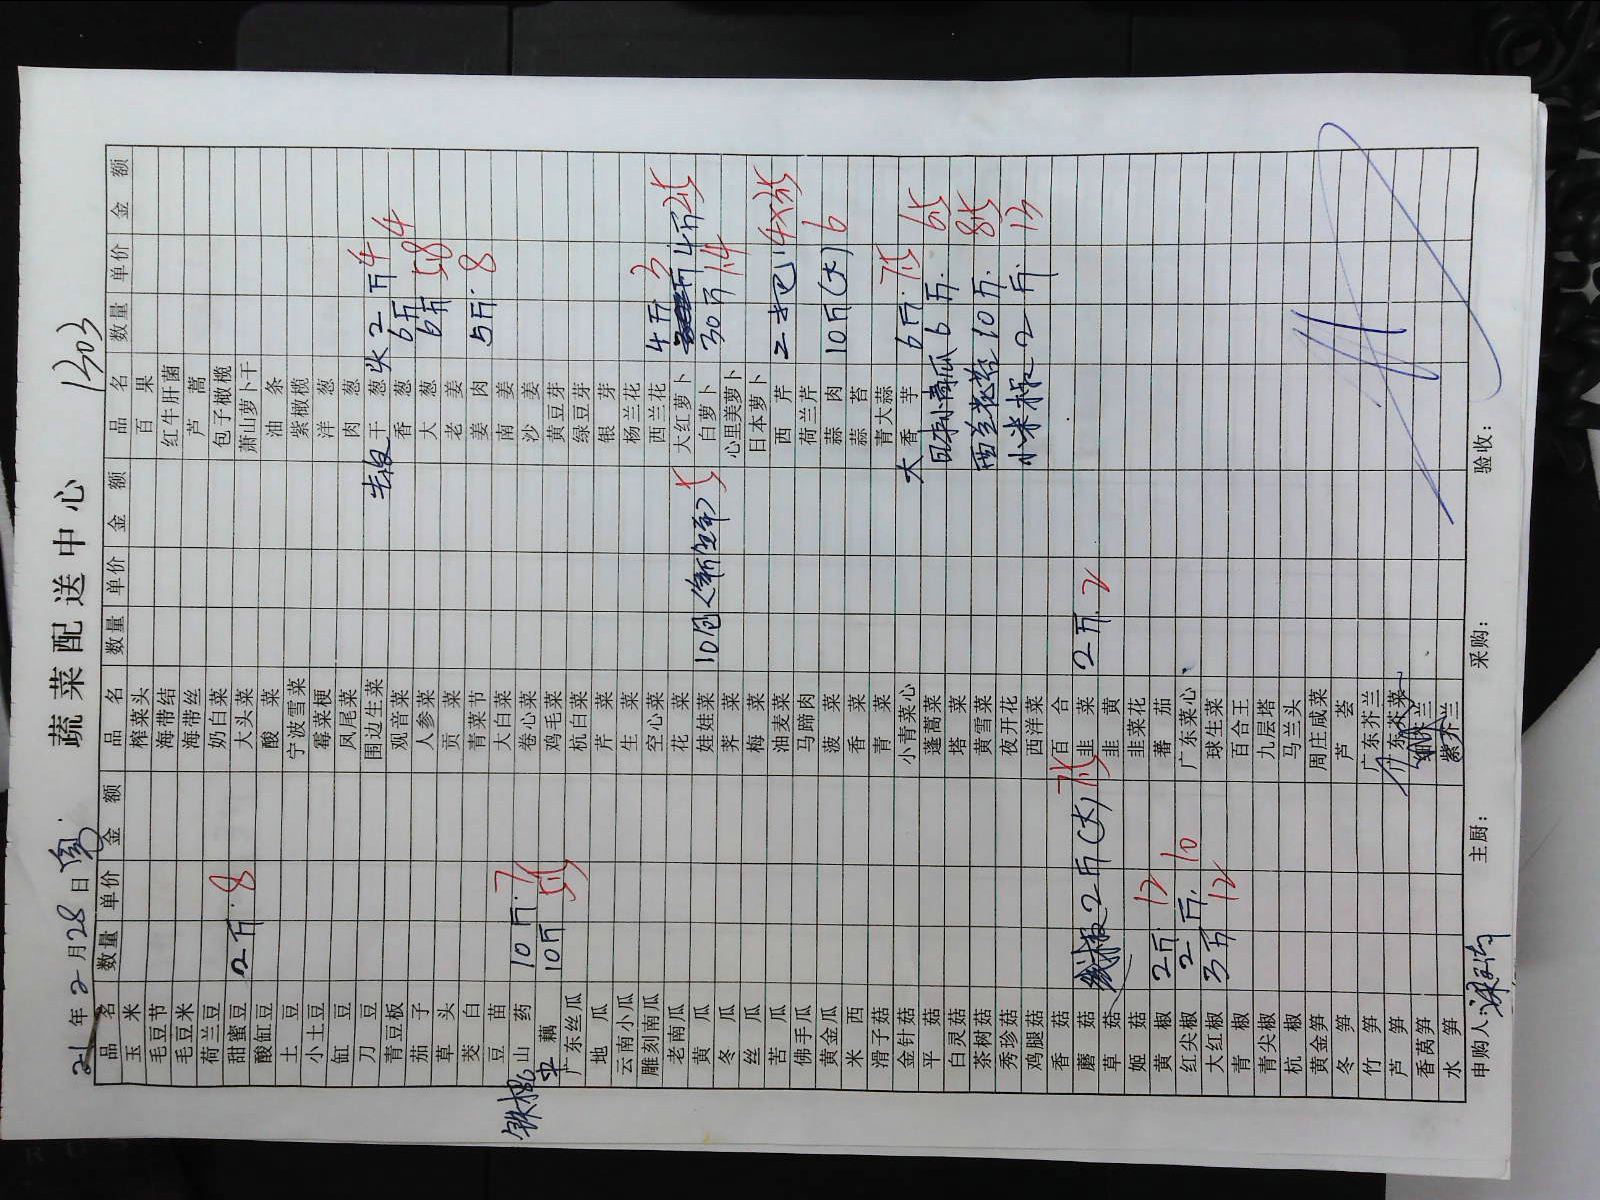 蔬菜配送中心
1303
21年2月28日
品名 数量 单价 金额 品名 数量 单价 金额 品名 数量 单价 金额
玉米 榨菜头 百果
毛豆节 海带结 红牛肝菌
毛豆米 海带丝 芦蒿
荷兰豆 奶白菜 包子橄榄
甜蜜豆 2斤 8 大头菜 萧山萝卜干
酸缸豆 酸菜 油条
土豆 宁波雪菜 紫橄榄
小土豆 霉菜梗 洋葱
缸豆 凤尾菜 肉葱
刀豆 围边生菜 干葱头 2斤 4
青豆板 观音菜 香葱 6斤 4
茄子 人参菜 大葱 6斤 5.8
草头 贡菜 老姜
茭白 青菜节 姜肉 5斤 8
豆苗 大白菜 南姜
铁棍山药 10斤 7 卷心菜 沙姜
藕 10斤 鸡毛菜 黄豆芽
广东丝瓜 杭白菜 绿豆芽
地瓜 芹菜 银芽
云南小瓜 生菜 杨兰花
雕刻南瓜 空心菜 西兰花 4斤 3
老南瓜 花菜 大红萝卜 4斤
黄瓜 娃娃菜 10包 白萝卜 30斤 1.4
冬瓜 荠菜 心里美萝卜
丝瓜 梅菜 日本萝卜
苦瓜 油麦菜 西芹 2把
佛手瓜 马蹄肉 荷兰芹
黄金瓜 菠菜 蒜肉 10斤(大) 6
米西 香菜 蒜苔
滑子菇 青菜 青大蒜
金针菇 小青菜心 大香芋 6斤
平菇 蓬蒿菜 日本小南瓜 6斤
白灵菇 塔菜
茶树菇 黄雪菜 西兰花苔 10斤
秀珍菇 夜开花
鸡腿菇 西洋菜 小米椒 2斤 13
香菇 百合
蘑菇 线椒 2斤(大) 韭菜 2斤 2
草菇 韭黄
姬菇 韭菜花
黄椒 2斤 12 蕃茄
红尖椒 2斤 10 广东菜心
大红椒 3斤 12 球生菜
青椒 百合王
青尖椒 九层塔
杭椒 马兰头
黄金笋 周庄咸菜
冬笋 芦荟
竹笋 广东芥兰
芦笋 广东芥菜
香莴笋
水笋 紫芥兰
申购人: 主厨: 采购: 验收: